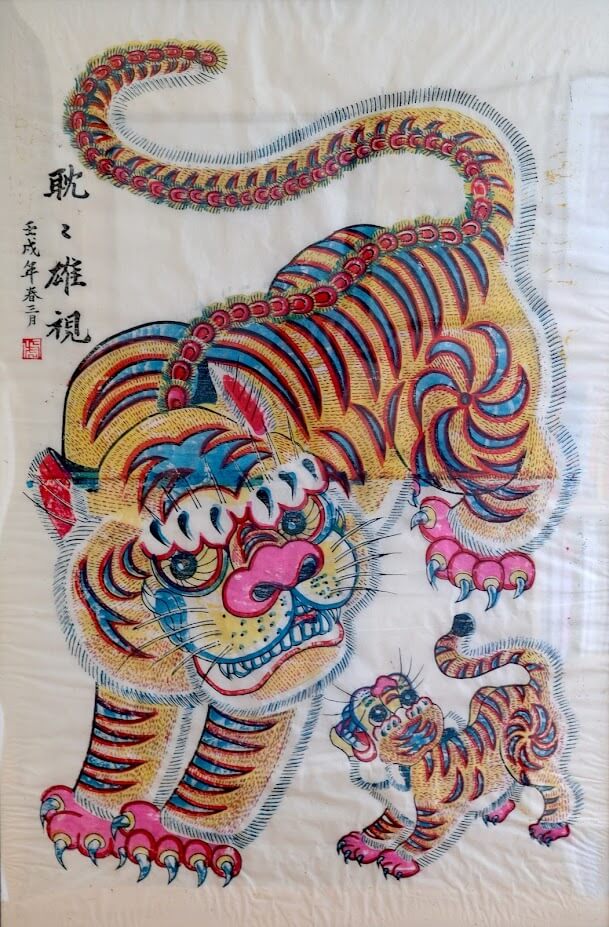 耽〻雄視
壬戌年春三月